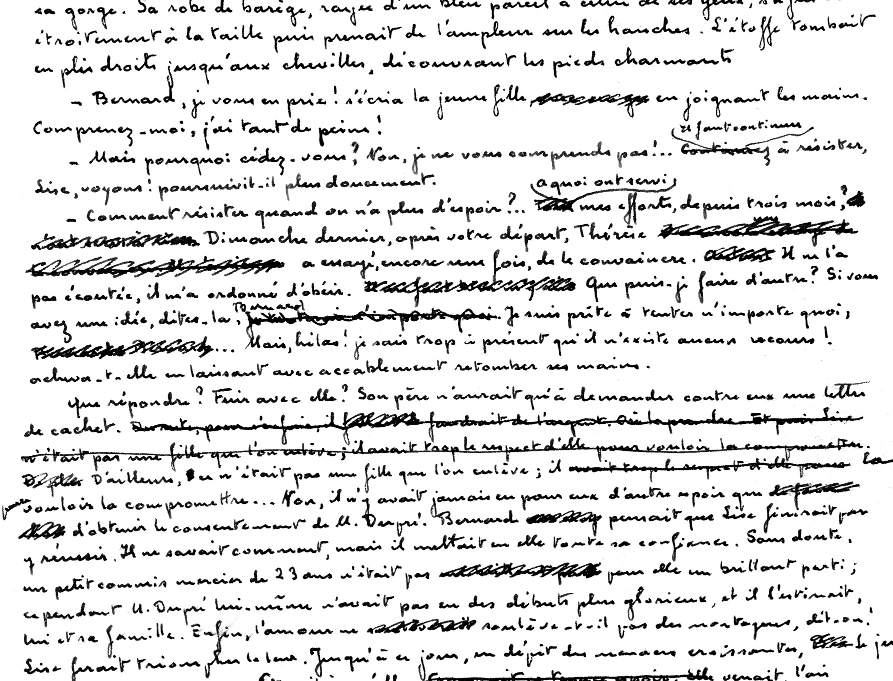 sa gorge. Sa robe de barège, rayée d'un bleu pareil à celui de ses yeux,
étroitement à la taille puis prenait de l'ampleur sur les hanches. L'étoffe tombait
en plis droits jusqu'aux chevilles, découvrant les pieds charmants
- Bernard, je vous en prie ! s'écria la jeune fille, en joignant les mains.
Comprenez-moi, j'ai tant de peine !
il faut continuer
- Mais pourquoi cédez-vous ? Non, je ne vous comprends pas !.. Continuez à résister,
Lise, voyons ! poursuivit-il plus doucement.
à quoi ont servi
- Comment résister quand on n'a plus d'espoir ?... mes efforts, depuis trois mois ?
Dimanche dernier, après votre départ, Thérèse
a essayé, encore une fois, de le convaincre. Il ne l'a
pas écoutée, il m'a ordonné d'obéir. Que puis-je faire d'autre ? Si vous
Bernard
avez une idée, dites-la, Je suis prête à tenter n'importe quoi,
... Mais, hélas ! je sais trop à présent qu'il n'existe aucun recours !
acheva-t-elle en laissant avec accablement retomber ses mains.
Que répondre ? Fuir avec elle ? Son père n'aurait qu'à demander contre eux une lettre
de cachet. faudrait de l'argent. Où le prendre. Et puis Lise
n'était pas une fille que l'on enlève ; il avait trop le respect d'elle pour vouloir la compromettre.
D'ailleurs, ce n'était pas une fille que l'on enlève ; il avait trop le respect d'elle pour la
pour
vouloir la compromettre... Non, il n'y avait jamais eu pour eux d'autre espoir que
d'obtenir le consentement de M. Dupré. Bernard pensait que Lise finirait par
y réussir. Il ne savait comment, mais il mettait en elle toute sa confiance. Sans doute,
un petit commis mercier de 23 ans n'était pas pour elle un brillant parti ;
cependant M. Dupré lui-même n'avait pas eu des débuts plus glorieux, et il l'estimait,
lui et sa famille. Enfin, l'amour ne soulève-t-il pas des montagnes, dit-on !
Lise ferait triompher le leur. Jusqu'à ce jour, en dépit des menaces croissantes,
elle venait,